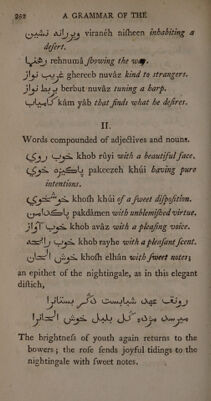 252 A GRAMMAR OF THE
ويرانه نشين viranéh nisheen inhabiting a
desert.
رهنما rehnumâ showing the way.
غريب نواز ghereeb nuvâz kind to strangers.
بربط نواز berbut nuvâz tuning a harp.
كام ياب kâm yâb that finds what he desires.
II.
Words compounded of adjectives and nouns.
خوب روي khob rûyi with a beautiful face.
پاكيزه خوي pakeezeh khûi having pure
intentions.
خوش خوي khosh khûi of a sweet disposition.
پاكدامن pakdâmen with unblemished virtue.
خوب آواز khob avâz with a pleasing voice.
خوب رايحه khob rayhe with a pleasant scent.
خوش الحان khosh elhân with sweet notes;
an epithet of the nightingale, as in this elegant
distich,
رونق عهد شبابست دگر بستانرا
ميرسد مژده گل بلبل خوش الحانرا
The brightness of youth again returns to the
bowers; the rose sends joyful tidings to the
nightingale with sweet notes.